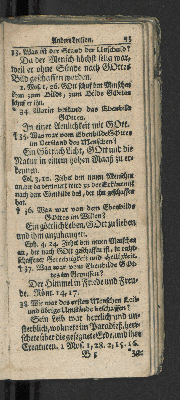 Andere Lection. 23
33. Was ist der Stand der Unschuld?
Da der Mensch höchst selig war,
weil er ohne Sünde nach GOttes
Bild geschaffen worden.
1. Mos. 1, 26. GOtt schuf den Menschen
ihm zum Bilde, zum Bilde GOttes
schuf er ihn.
* 34. Worin bestund das Ebenbild
GOttes?
In einer Aenlichkeit mit GOtt.
* 35. Was war vom Ebenbilde GOttes
im Verstand des Menschen?
Ein Göttlich Licht, GOtt und die
Natur in einem hohen Maaß zu er-
kennen.
Col. 3, 10. Ziehet den neuen Menschen
an, der da verneuert wird zu der Erkenntniß
nach dem Ebenbilde des, der ihn geschaffen
hat.
* 36. Was war von dem Ebenbild
GOttes im Willen?
Ein göttlich Leben, GOtt zu lieben
und ihm anzuhangen.
Eph. 4, 24. Ziehet den neuen Menschen
an, der nach GOtt geschaffen ist, in recht-
schaffener Gerechtigkeit und Heiligkeit.
* 37. Was war vom Ebenbilde GOt-
tes im Gewissen?
Der Himmel in Friede und Freu-
de. Röm. 14, 17.
38. Wie war des ersten Menschen Leib
und übrige Umstände beschaffen?
Sein Leib war herrlich und un-
sterblich, wohnete im Paradeiß, herr-
schete über die gesegnete Erde, und ihre
Creaturen. 1 Mos. 1, 28. 2, 15. 16.
B 5 39.